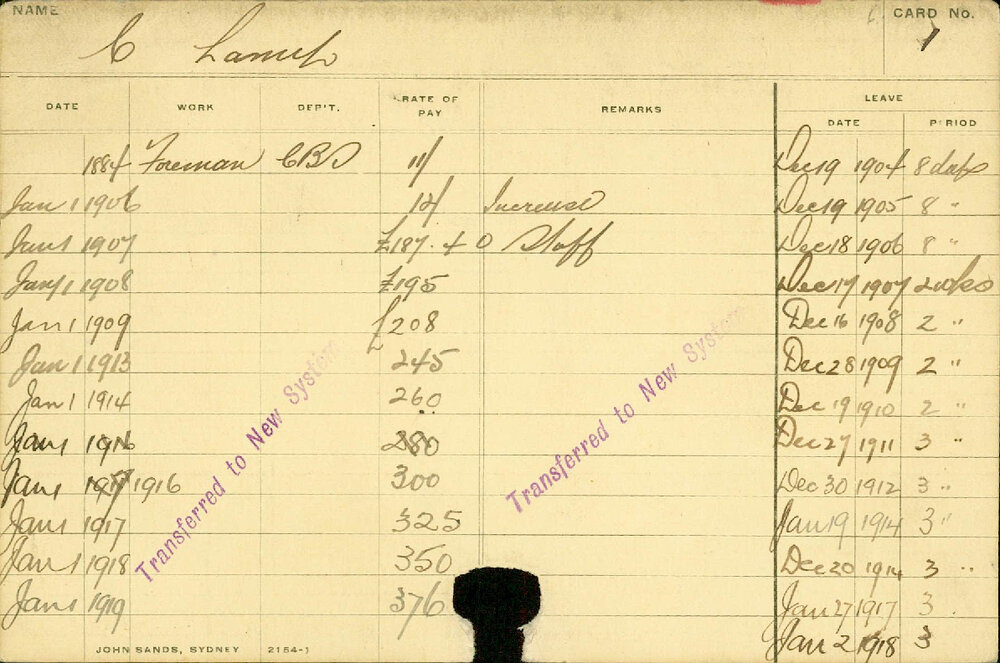 NAME
CARD No.
C
1
DATE WORK DEP'T. RATE OF PAY REMARKS LEAVE
DATE PERIOD
1884 Foreman CBD 11/ Dec 19 1904 8 days
Jan 1 1906 12/ Increase Dec 19 1905 8 "
Jan 1 1907 £187. 4 0 Staff Dec 18 1906 8 "
Jan 1 1908 £195 Dec 17 1907 2 wks
Jan 1 1909 £208 Dec 16 1908 2 "
Jan 1 1913 245 Dec 28 1909 2 "
Jan 1 1914 260 Dec 19 1910 2 "
Jan 1 280 Dec 27 1911 3 "
Jan 1 1916 300 Dec 30 1912 3 "
Jan 1 1917 325 Jan 19 1914 3 "
Jan 1 1918 350 Dec 20 1914 3 "
Jan 1 1919 376 Jan 27 1917 3 .
Jan 2 1918 3
Transferred to New System
Transferred to New System
JOHN SANDS, SYDNEY 2154-1